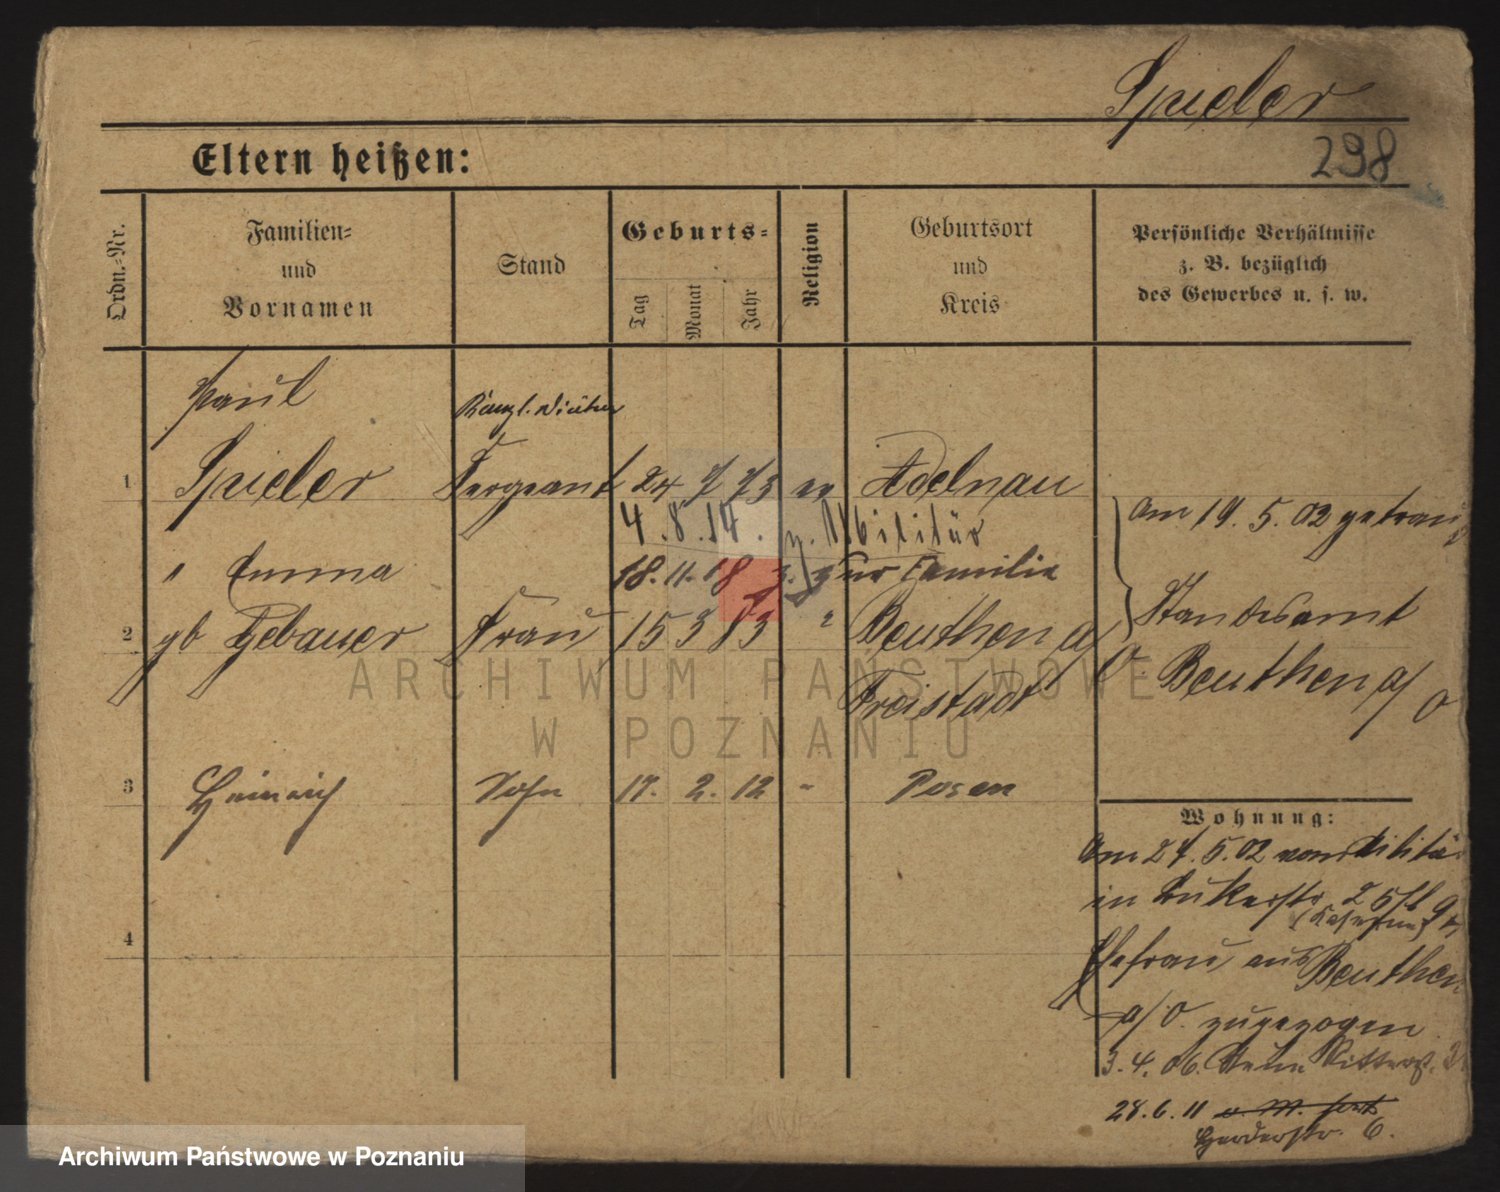 Spieler
298
Eltern heißen:
Ordn.-Nr.
Familien-
und
Vornamen
Stand
Geburts-
Tag
Monat
Jahr
Religion
Geburtsort
und
Kreis
Persönliche Verhältnisse
z. B. bezüglich
des Gewerbes u. s. w.
Paul
1 Spieler Sergeant 24 7 73 ev Adelnau
4.8.14. z. Militär
18.11.18 z. zur Familie
" Emma
2 gb Gebauer Frau 15 3 83 " Beuthen a/O
Freistadt
3 Heinrich Sohn 17. 2. 12 " Posen
4
Am 19. 5. 02 getraut
Standesamt
Beuthen a/O
Wohnung:
Am 27. 5. 02 vom Militär
in
Ehefrau aus Beuthen
a/O. zugezogen
3. 4. 06.
28. 6. 11
Herderstr. 6.
ARCHIWUM PAŃSTWOWE
W POZNANIU
Archiwum Państwowe w Poznaniu